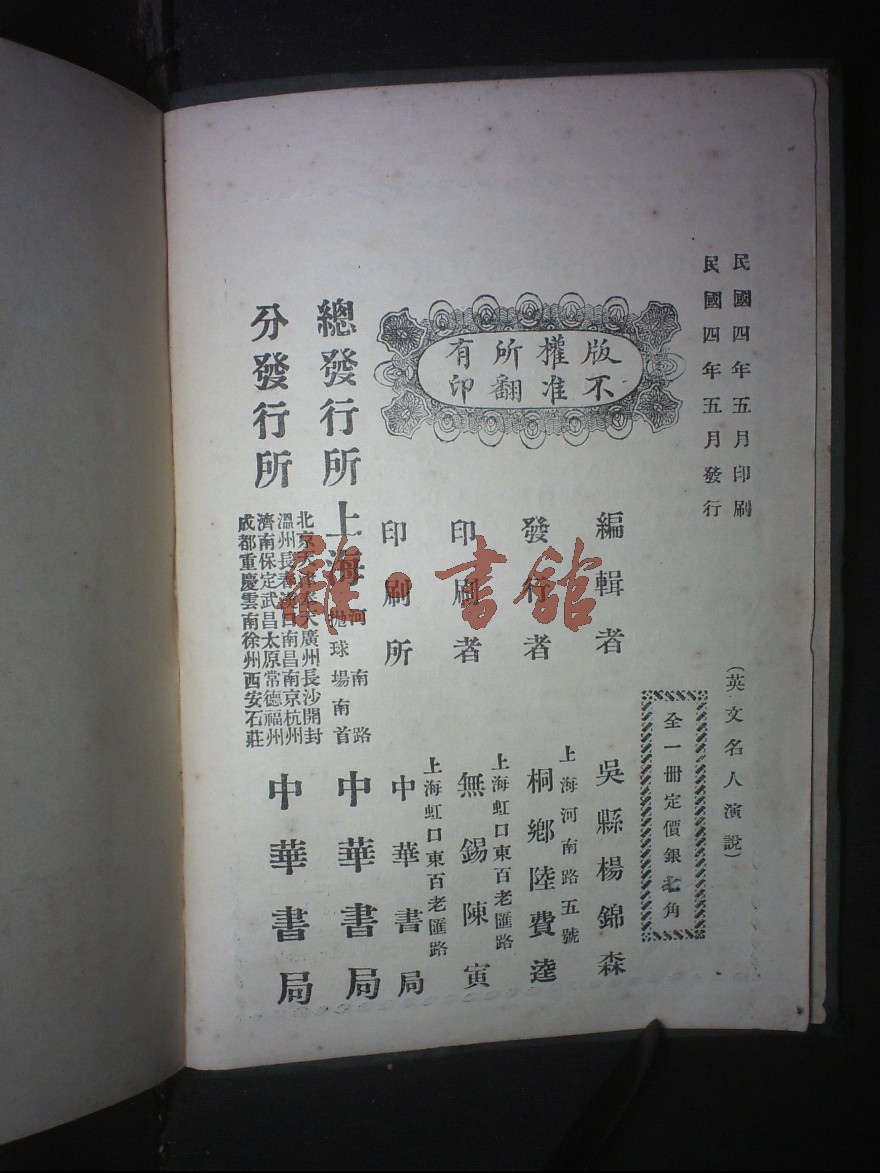 民國四年五月印刷
民國四年五月發行
（英文名人演說）
全一冊定價銀 角
版權所有
不准翻印
編輯者 吳縣楊錦森
發行者 上海河南路五號 桐鄉陸費逵
印刷者 上海虹口東百老匯路 無錫陳寅
印刷所 上海虹口東百老匯路 中華書局
總發行所 上海 河南路
拋球場南首 中華書局
分發行所
北京天 奉天廣州長沙開封
溫州長春漢口南昌南京杭州
濟南保定武昌太原常德福州
成都重慶雲南徐州西安石莊
中華書局
雜·書館